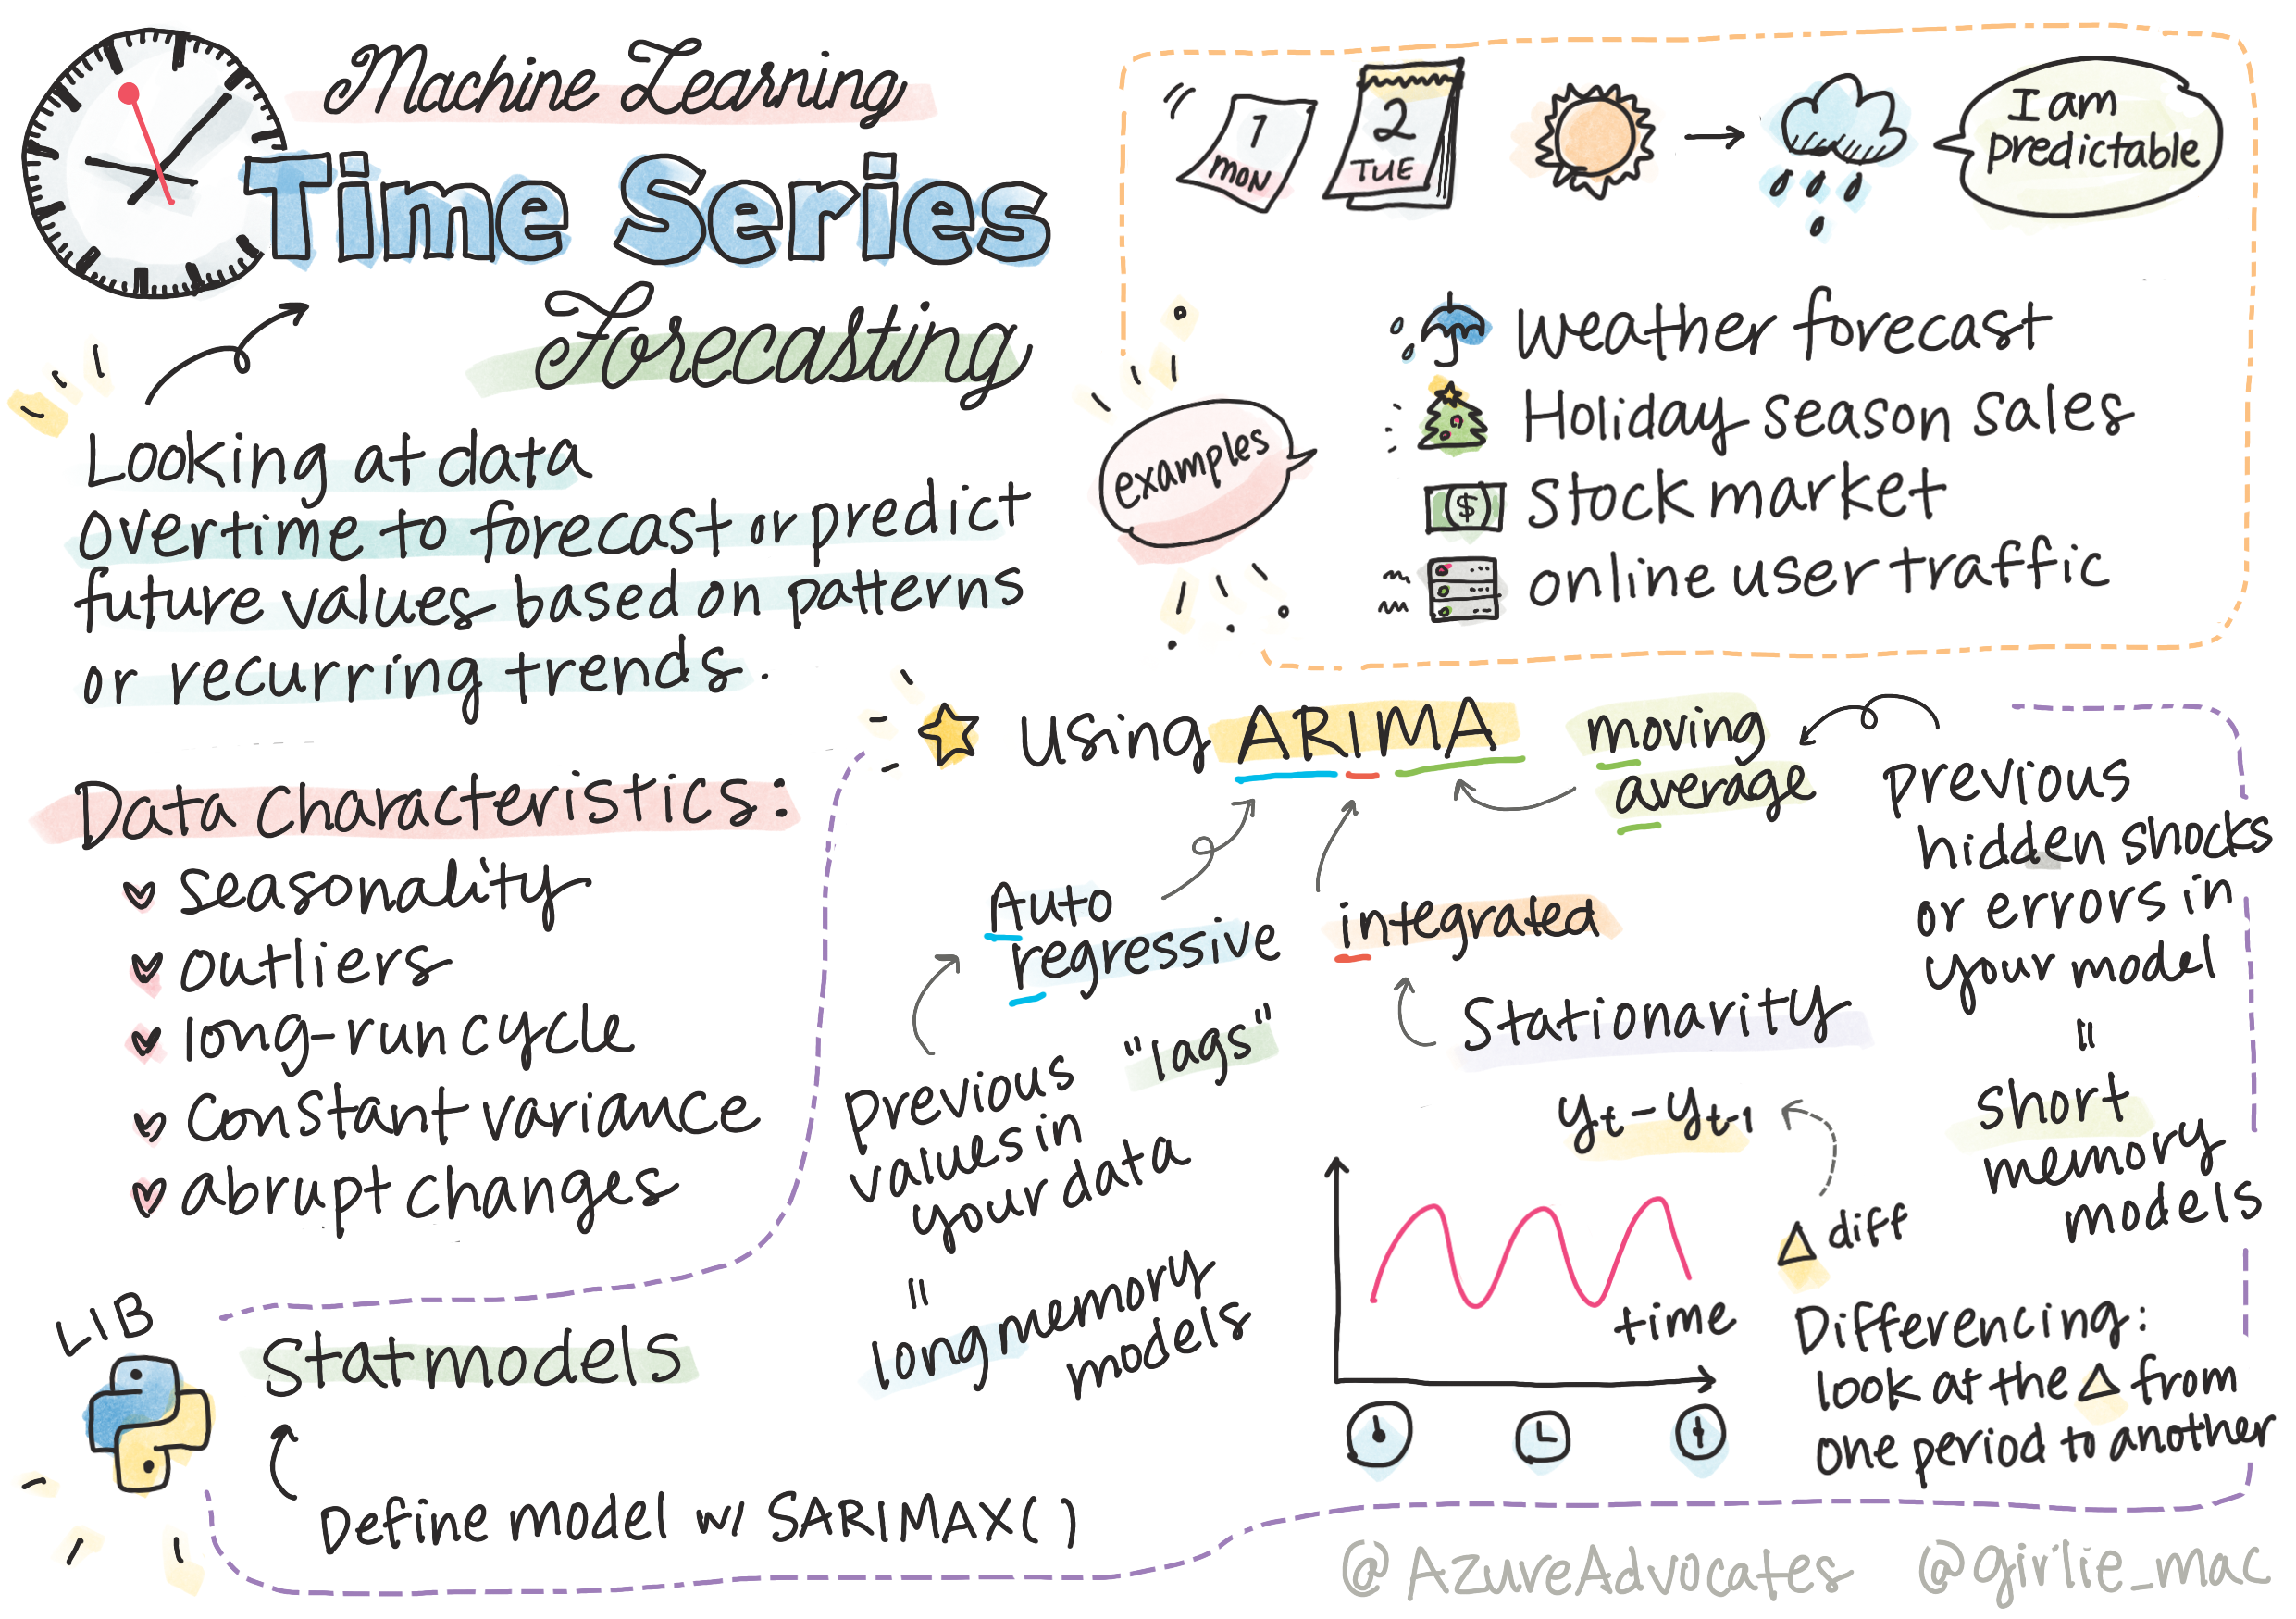 Machine Learning
Time Series
Forecasting
Looking at data
overtime to forecast or predict
future values based on patterns
or recurring trends.
1
MON
2
TUE
I am
predictable
examples
weather forecast
Holiday season sales
$ stock market
online user traffic
Data Characteristics:
seasonality
outliers
long-run cycle
constant variance
abrupt changes
using ARIMA
moving
average
previous
hidden shocks
or errors in
your model
=
short
memory
models
Auto
regressive
"lags"
previous
values in
your data
=
long memory
models
integrated
Stationarity
yt - yt-1
Δ diff
time
Differencing:
look at the Δ from
one period to another
LIB
Statmodels
Define model w/ SARIMAX()
@AzureAdvocates @girlie_mac